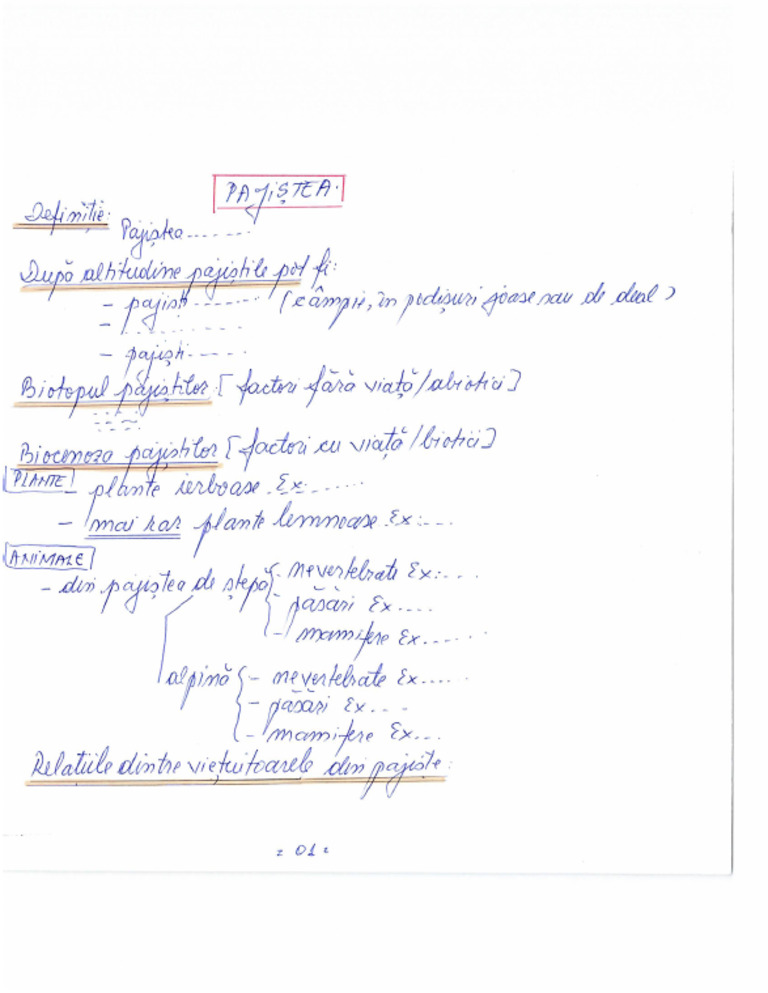 PAJIȘTEA.
Definiție:
Pajiștea.......
După altitudine pajiștile pot fi:
- pajiști........ (câmpie, în podișuri joase sau de deal)
- ............
- pajiști......
Biotopul pajiștilor [factori fără viață/abiotici]
Biocenoza pajiștilor [factori cu viață/biotici]
PLANTE
- plante ierboase. Ex:.......
- mai rar plante lemnoase. Ex:....
ANIMALE
- din pajiștea de stepă { - nevertebrate Ex:....
- păsări Ex.....
- mamifere Ex.......
alpină { - nevertebrate Ex.....
- păsări Ex....
- mamifere Ex....
Relațiile dintre viețuitoarele din pajiște:
= 01 =